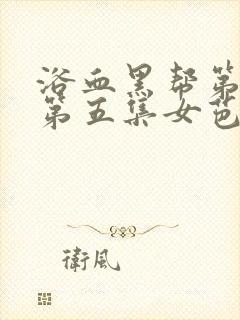 浴血黑帮第
第五集女芭
衛風